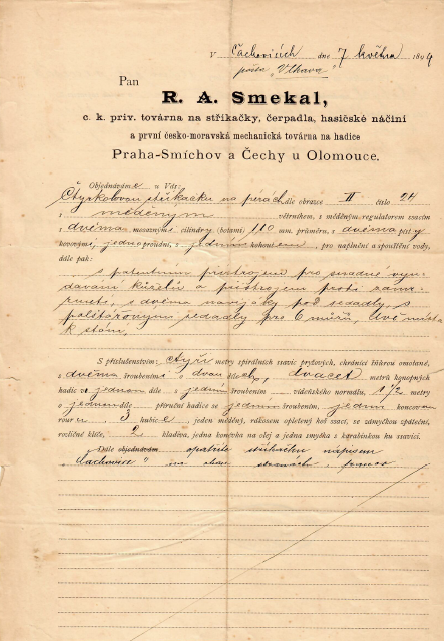 V Čachovicích dne 7 května 1894
pošta „Vlkava"
Pan
R. A. Smekal,
c. k. priv. továrna na stříkačky, čerpadla, hasičské náčiní
a první česko-moravská mechanická továrna na hadice
Praha-Smíchov a Čechy u Olomouce.
Objednáváme u Vás:
Čtyrkolovou stříkačku na pérách dle obrazce II číslo 24
s měděným větrníkem, s měděným regulatorem ssavicím
s dvěma mosaznými cylindry (botami) 110 mm. průměru, s dvěma písty
kovovými, jednoproudní, s jedním kohoutem, pro naplnění a spouštění vody,
dále pak:
s patentním přístrojem pro snadné vyndavání
kuželů a přístrojem proti
s dvěma navijáky pod sedadly, s
sedadly pro 6 mužů, dvě místa
k stání,
S příslušenstvím: čtyři metry spirálních ssavic pryžových, chránicí látkou omotané,
s dvěma šroubeními o dvou dílech, dvacet metrů konopných
hadic v jednom díle s jedním šroubením vídeňského normálu, 1 1/2 metry
o jednom díle příruční hadice se jedním šroubením, jednu koncovou
rouru, 3 hubice, jeden měděný, rákosem opletený koš ssací, se zámyčkou zpáteční,
rozličné klíče, 2 kladiva, jedna konévka na olej a jedna smyčka s karabinkou ku ssavici.
Dále objednám opatřiti stříkačku nápisem
„Čachovice" na obou stranách,